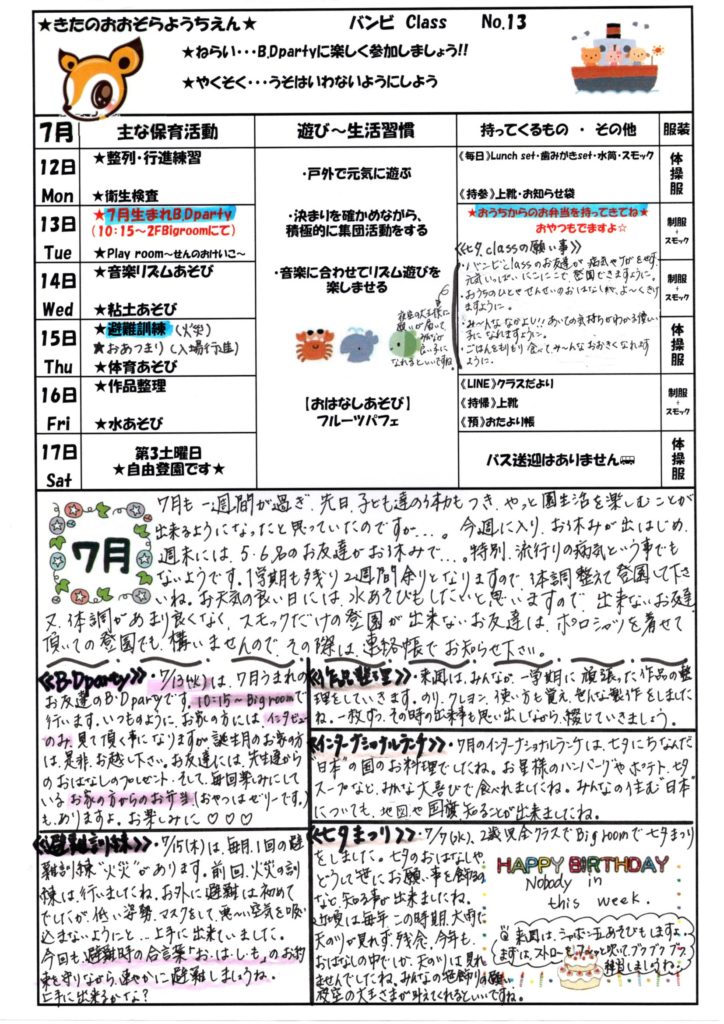 ★きたのおおぞらようちえん★ バンビ Class No.13
★ねらい・・・B.Dpartyに楽しく参加しましょう!!
★やくそく・・・うそはいわないようにしよう
7月 主な保育活動 遊び～生活習慣 持ってくるもの ・ その他 服装
12日 Mon
★整列・行進練習
★衛生検査
・戸外で元気に遊ぶ
《毎日》Lunch set・歯みがきset・水筒・スモック
《持参》上靴・お知らせ袋
体操服
13日 Tue
★7月生まれB.Dparty
(10:15～2FBigroomにて)
★Play room～せんのおけいこ～
・決まりを確かめながら、
積極的に集団活動をする
★おうちからのお弁当を持ってきてね★
おやつもでますよ☆
制服+スモック
《七夕classの願い事》
・バンビClassのお友達が、病気やケガをせず、
元気いっぱいニコニコで、登園できますように。
・おうちのひとやせんせいのおはなしを、よ～くきけ
ますように。
・み～んななかよし!!あいての気持ちがわかる優しい
子になれますように。
・ごはんをもりもり食べて、み～んなおおきくなれます
ように。
14日 Wed
★音楽リズムあそび
★粘土あそび
・音楽に合わせてリズム遊びを
楽しませる
制服+スモック
夜空の大王様に
願いが届いて、
みんなが
良い子に
なれるといいですね。
15日 Thu
★避難訓練 (火災)
★おあつまり (入場行進)
★体育あそび
体操服
16日 Fri
★作品整理
★水あそび
【おはなしあそび】
フルーツパフェ
《LINE》クラスだより
《持帰》上靴
《預》おたより帳
制服+スモック
17日 Sat
第3土曜日
★自由登園です★
バス送迎はありません
体操服
7月
7月も一週間が過ぎ、先日、子ども達の体力もつき、やっと園生活を楽しむことが
出来るようになったと思っていたのですが...。今週に入り、お休みが出はじめ、
週末には、5・6名のお友達がお休みで...。特別、流行りの病気という事でも
ないようです。1学期も残り2週間余りとなりますので、体調整えて登園して下さ
いね。お天気の良い日には、水あそびもしたいと思いますので、出来ないお友達、
又、体調があまり良くなく、スモックだけの登園が出来ないお友達は、ポロシャツを着せて
頂いての登園でも、構いませんので、その際は、連絡帳でお知らせ下さい。
《B.Dparty》・7/13(火)は、7月うまれの
お友達のB.Dpartyです。10:15～Bigroomで
行います。いつものように、お家の方には、インタビュー
のみ、見て頂く事になりますが、誕生月のお家の方
は、是非、お越し下さい。お友達には、先生達から
のおはなしのプレゼント、そして、毎回楽しみにして
いるお家の方からのお弁当(おやつはゼリーです。)
も、ありますよ。お楽しみに♡♡♡
《作品整理》・来週は、みんなが、一学期に頑張った作品の整
理をしていきます。のり、クレヨン、使い方も覚え、色んな製作をしました
ね。一枚ずつ、その時の出来事も思い出しながら、綴じていきましょう。
《インターナショナルランチ》・7月のインターナショナルランチは、七夕にちなんだ
"日本"の国のお料理でしたね。お星様のハンバーグやポテト、七夕
スープなど、みんな大喜びで食べれましたね。みんなの住む"日本"
についても、地図や国旗、知ることが出来ましたね。
《避難訓練》・7/15(木)は、毎月、1回の避
難訓練"火災"があります。前回、火災の訓
練は、行いましたね。お外に避難は初めて
でしたが、低い姿勢、マスクをして、悪い空気を吸い
込まないようにと...上手に出来ていました。
今回も避難時の合言葉「お・は・し・も」のお約
束を守りながら、速やかに避難しましょうね。
上手に出来るかな?
《七夕まつり》・7/7(水)、2歳児全クラスでBigroomで七夕まつり
をしました。七夕のおはなしや、
どうして笹にお願い事を飾るの
など、知る事が出来ましたね。
近頃は毎年この時期、大雨で
天の川が見れず、残念。今年も、
おはなしの中でしか、天の川は見れ
ませんでしたね。みんなの笹飾りの願い、
夜空の大王さまが叶えてくれるといいですね。
HAPPY BIRTHDAY
Nobody in
this week.
@来週は、シャボン玉あそびもしますよ。
まずは、ストローをフーッと吹いて、ブクブクブク
練習しましょうね。